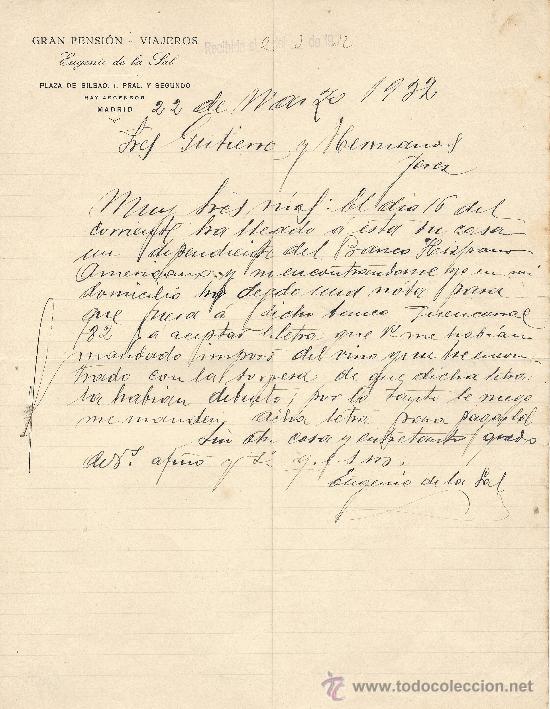 GRAN PENSIÓN - VIAJEROS
Eugenio de la Sal
PLAZA DE BILBAO, 1. PRAL. Y SEGUNDO
HAY ASCENSOR
MADRID
Recibida el 2 de 1932
22 de Marzo 1932
Sres Gutierre y Hermanos
Jerez
Muy Sres mios: el dia 16 del
corriente ha llegado a esta su casa
un dependiente del Banco Hispano
Americano y no encontrandome yo en mi
domicilio ha dejado una nota para
que fuera a dicho banco Sucursal
a aceptar letra que V. me habian
mandado importe del vino y me he encon
trado con la sorpresa de que dicha letra
la habian debuelto; por lo tanto le ruego
me manden dicha letra para pagarla
Sin otra cosa y entretanto quedo
de Vs. afmo y s. s. q. e. s. m.
Eugenio de la Sal
www.todocoleccion.net